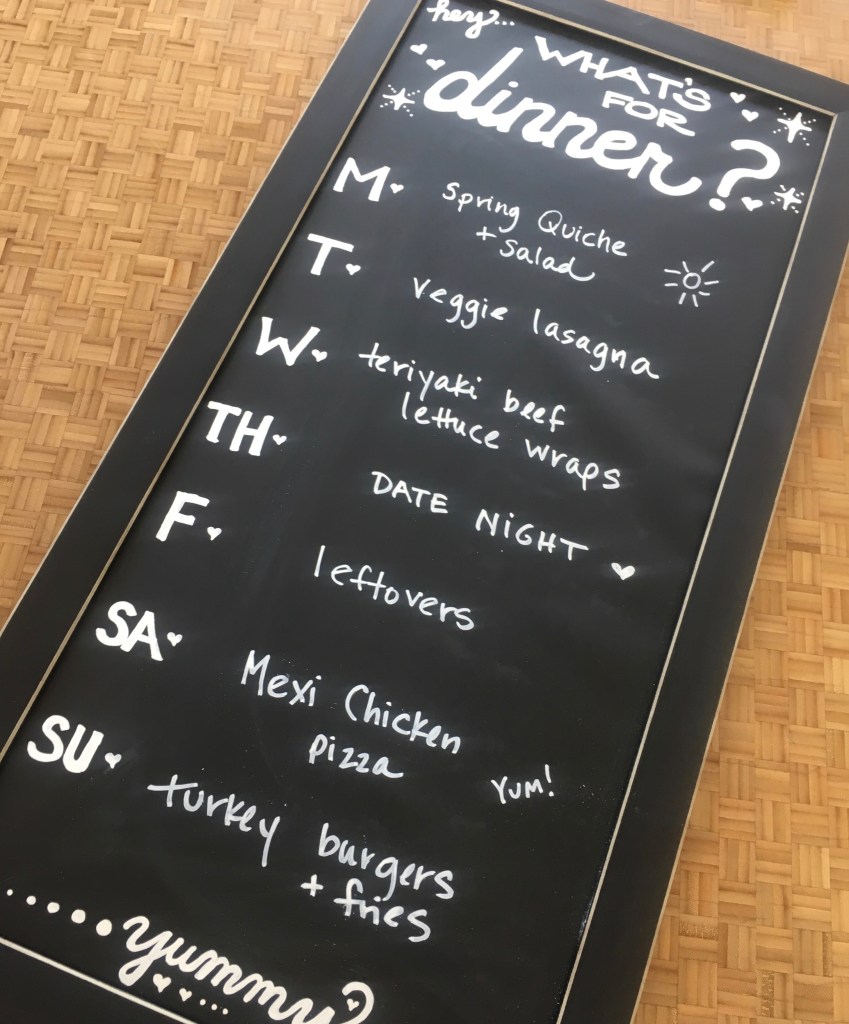 hey...
WHAT'S
FOR
dinner?
M Spring Quiche
+ Salad
T Veggie lasagna
W teriyaki beef
lettuce wraps
TH DATE NIGHT
F leftovers
SA Mexi Chicken
pizza YUM!
SU turkey burgers
+ fries
......yummy?